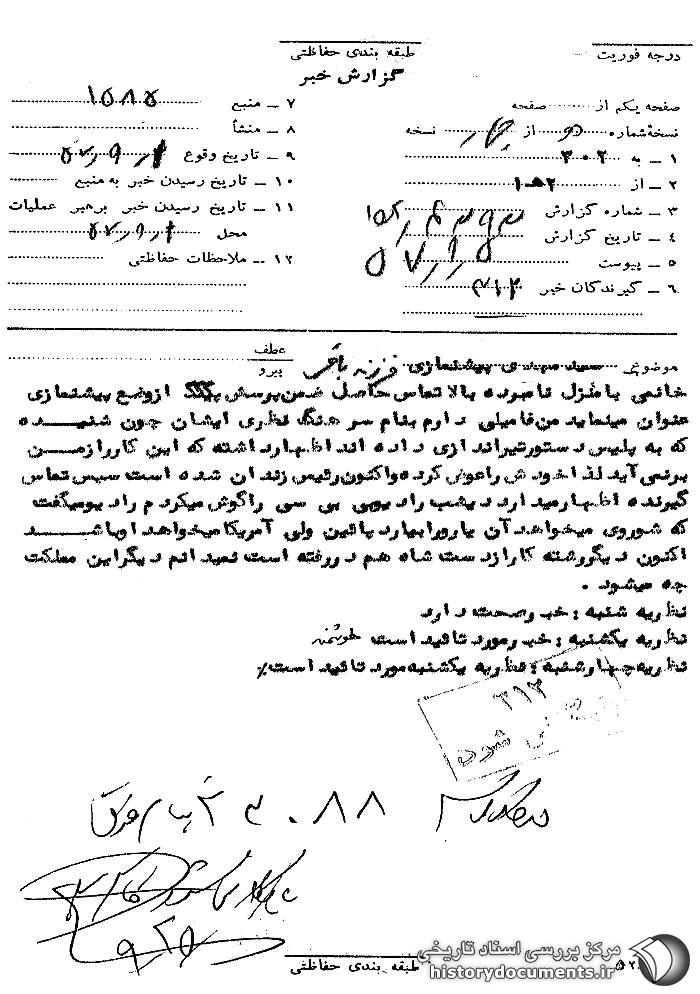 درجه فوریت
طبقه بندی حفاظتی
گزارش خبر
صفحه یکم از ........ صفحه
نسخهٔ شماره دو از چهار نسخه
۱ ــ به ۳۰۲
۲ ــ از
۳ ــ شماره گزارش
۴ ــ تاریخ گزارش
۵ ــ پیوست
۶ ــ گیرندگان خبر ۳۱۲
۷ ــ منبع ۱۵۸۵
۸ ــ منشأ
۹ ــ تاریخ وقوع
۱۰ ــ تاریخ رسیدن خبر به منبع
۱۱ ــ تاریخ رسیدن خبر برهبر عملیات
محل
۱۲ ــ ملاحظات حفاظتی
عطف
پیرو
موضوع سید مهدی پیشنمازی فرزند باقر
خانمی با منزل نامبرده بالا تماس حاصل ضمن پرسش از وضع پیشنمازی
عنوان مینماید من فامیلی دارم بنام سرهنگ نظری ایشان چون شنیده
که به پلیس دستور تیراندازی داده اند اظهار داشته که این کار از من
برنمی آید لذا خودش را عوض کرده و اکنون رئیس زندان شده است سپس تماس
گیرنده اظهار میدارد دیشب رادیو بی بی سی را گوش میکردم رادیو میگفت
که شوروی میخواهد آن یارو را بیارد پائین ولی آمریکا میخواهد او باشد
اکنون دیگر رشته کار از دست شاه هم در رفته است نمیدانم دیگر این مملکت
چه میشود .
نظریه شنبه : خبر صحت دارد
نظریه یکشنبه : خبر مورد تائید است
نظریه چهارشنبه : نظریه یکشنبه مورد تائید است٪
۳۱۲
شود
طبقه بندی حفاظتی
مرکز بررسی اسناد تاریخی
historydocuments.ir